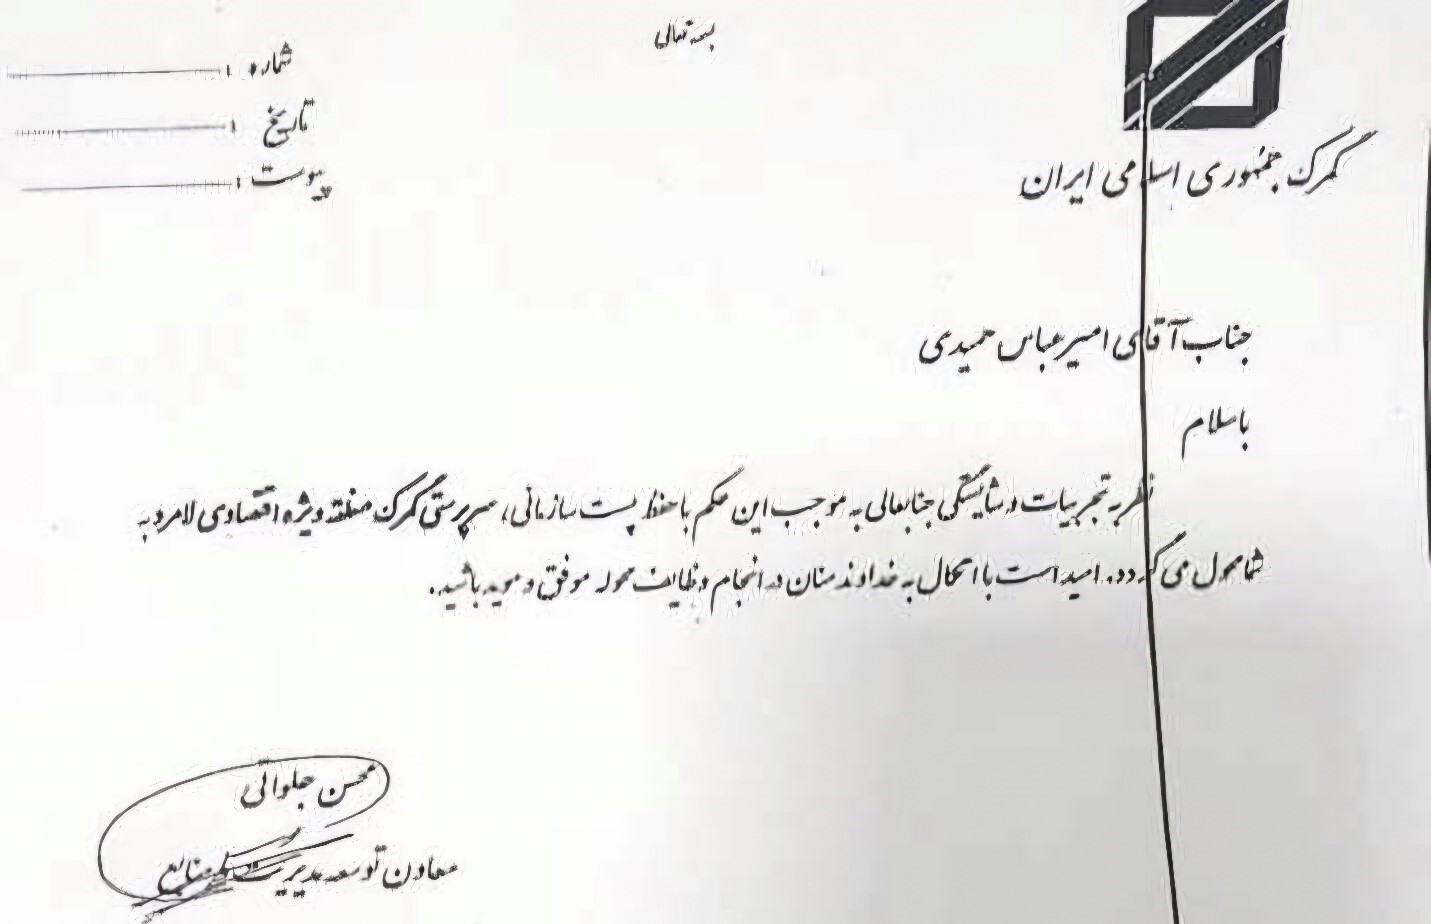 بسمه تعالی
شماره :
تاریخ :
پیوست :
گمرک جمهوری اسلامی ایران
جناب آقای امیرعباس حمیدی
باسلام
نظر به تجربیات و شایستگی جنابعالی به موجب این حکم با حفظ پست سازمانی، سرپرستی گمرک منطقه ویژه اقتصادی لامرد به
شما محول می گردد. امید است با اتکال به خداوند منان در انجام وظایف محوله موفق و موید باشید.
محسن جلواتی
معاون توسعه مدیریت و منابع